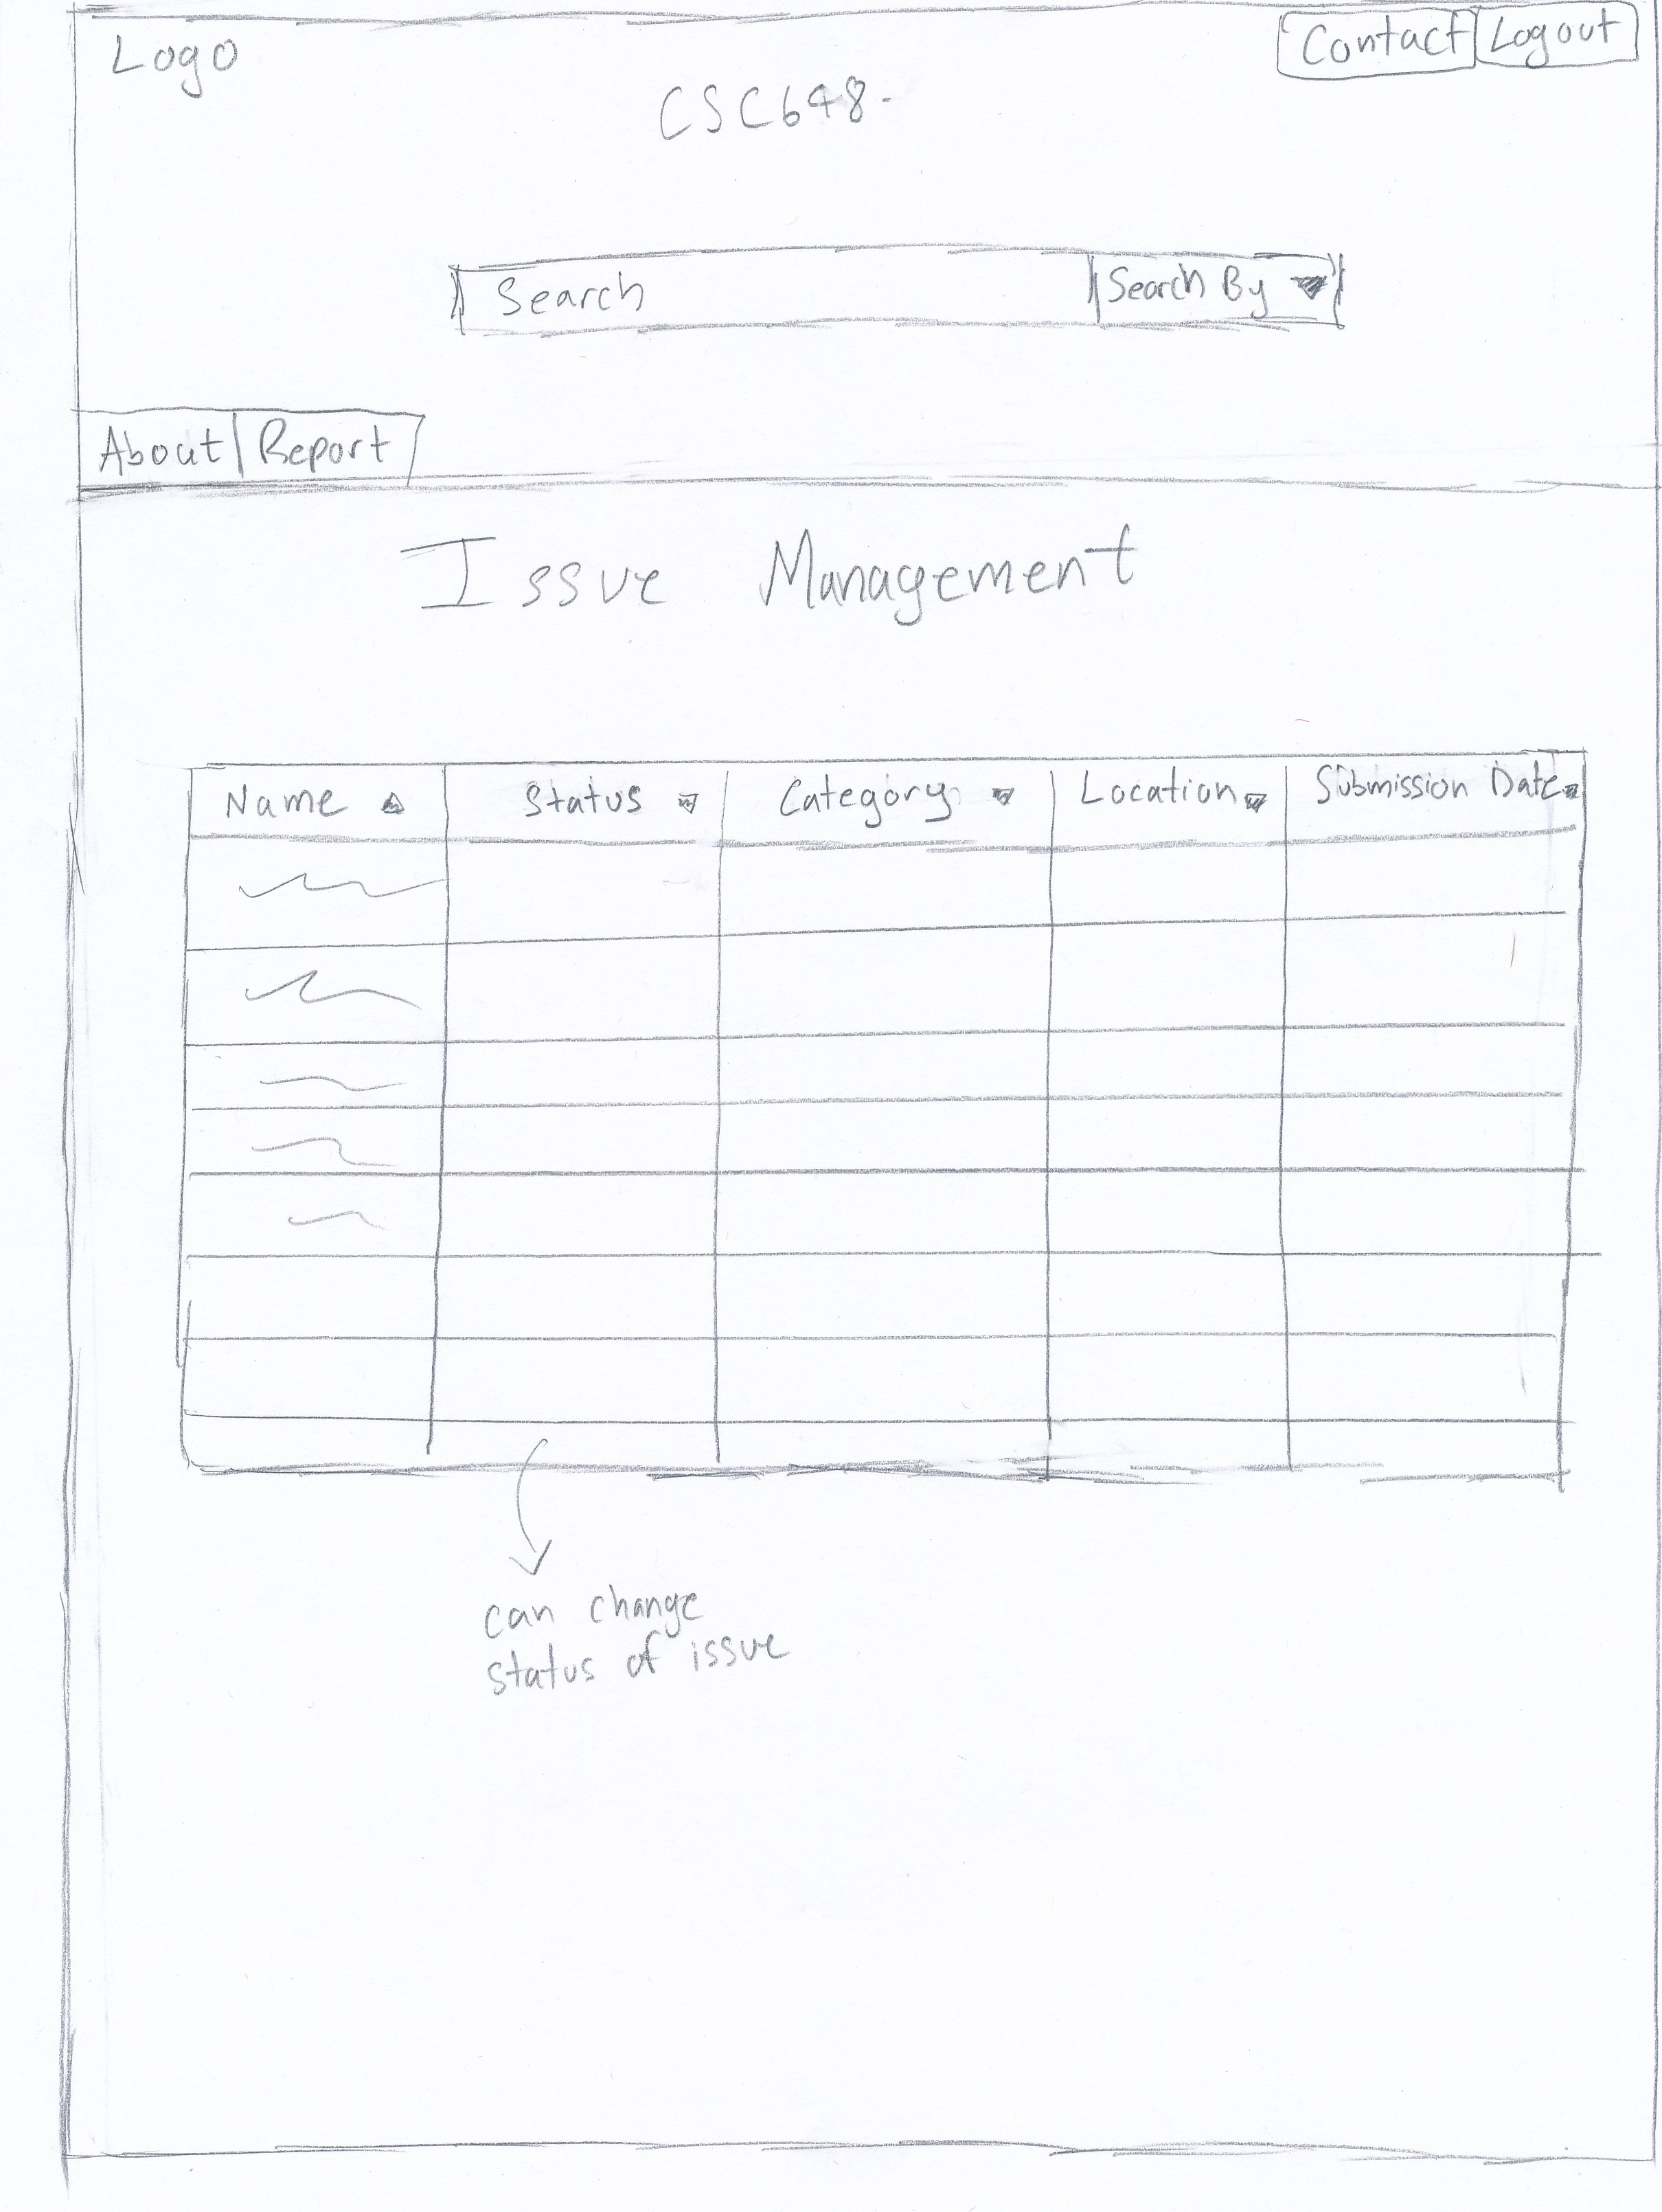 Logo
Contact Logout
CSC648-
Search Search By
About Report
Issue Management
Name Status Category Location Submission Date
can change
status of issue